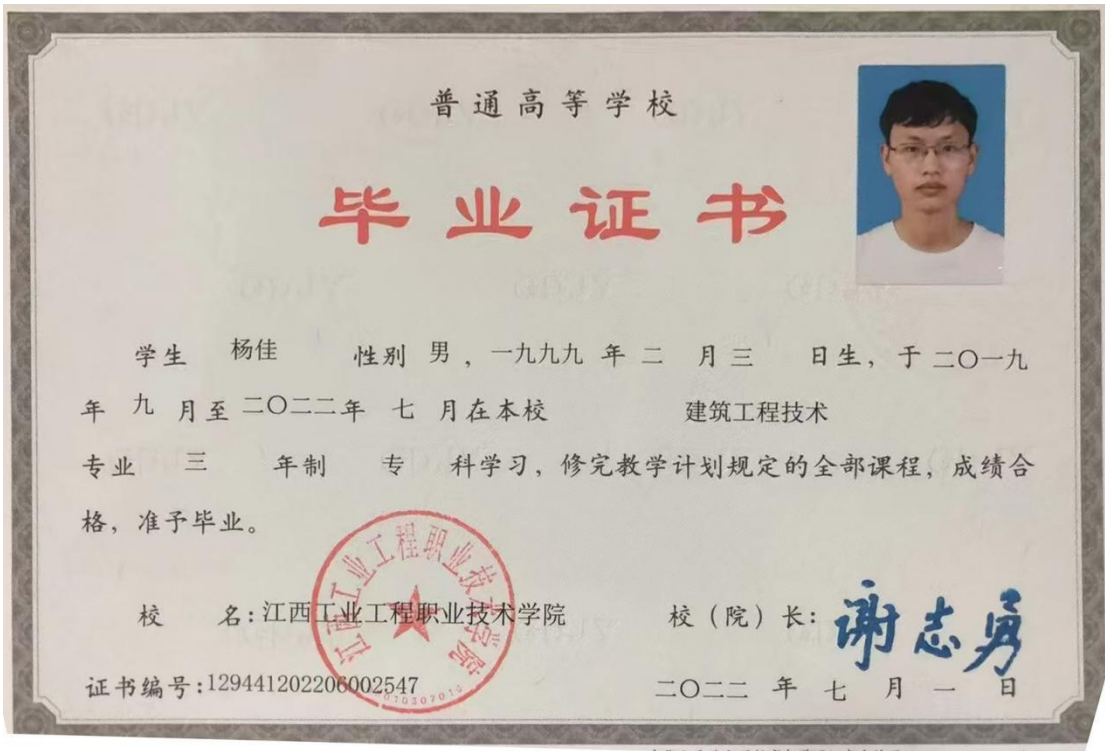 普通高等学校
毕业证书
学生 杨佳 性别 男，一九九九 年 二 月 三 日生，于 二〇一九
年 九 月至 二〇二二年 七 月在本校 建筑工程技术
专业 三 年制 专 科学习，修完教学计划规定的全部课程，成绩合
格，准予毕业。
江西工业工程职业技术学院
校 名：江西工业工程职业技术学院 校（院）长：谢志勇
证书编号：129441202206002547 二〇二二 年 七 月 一 日